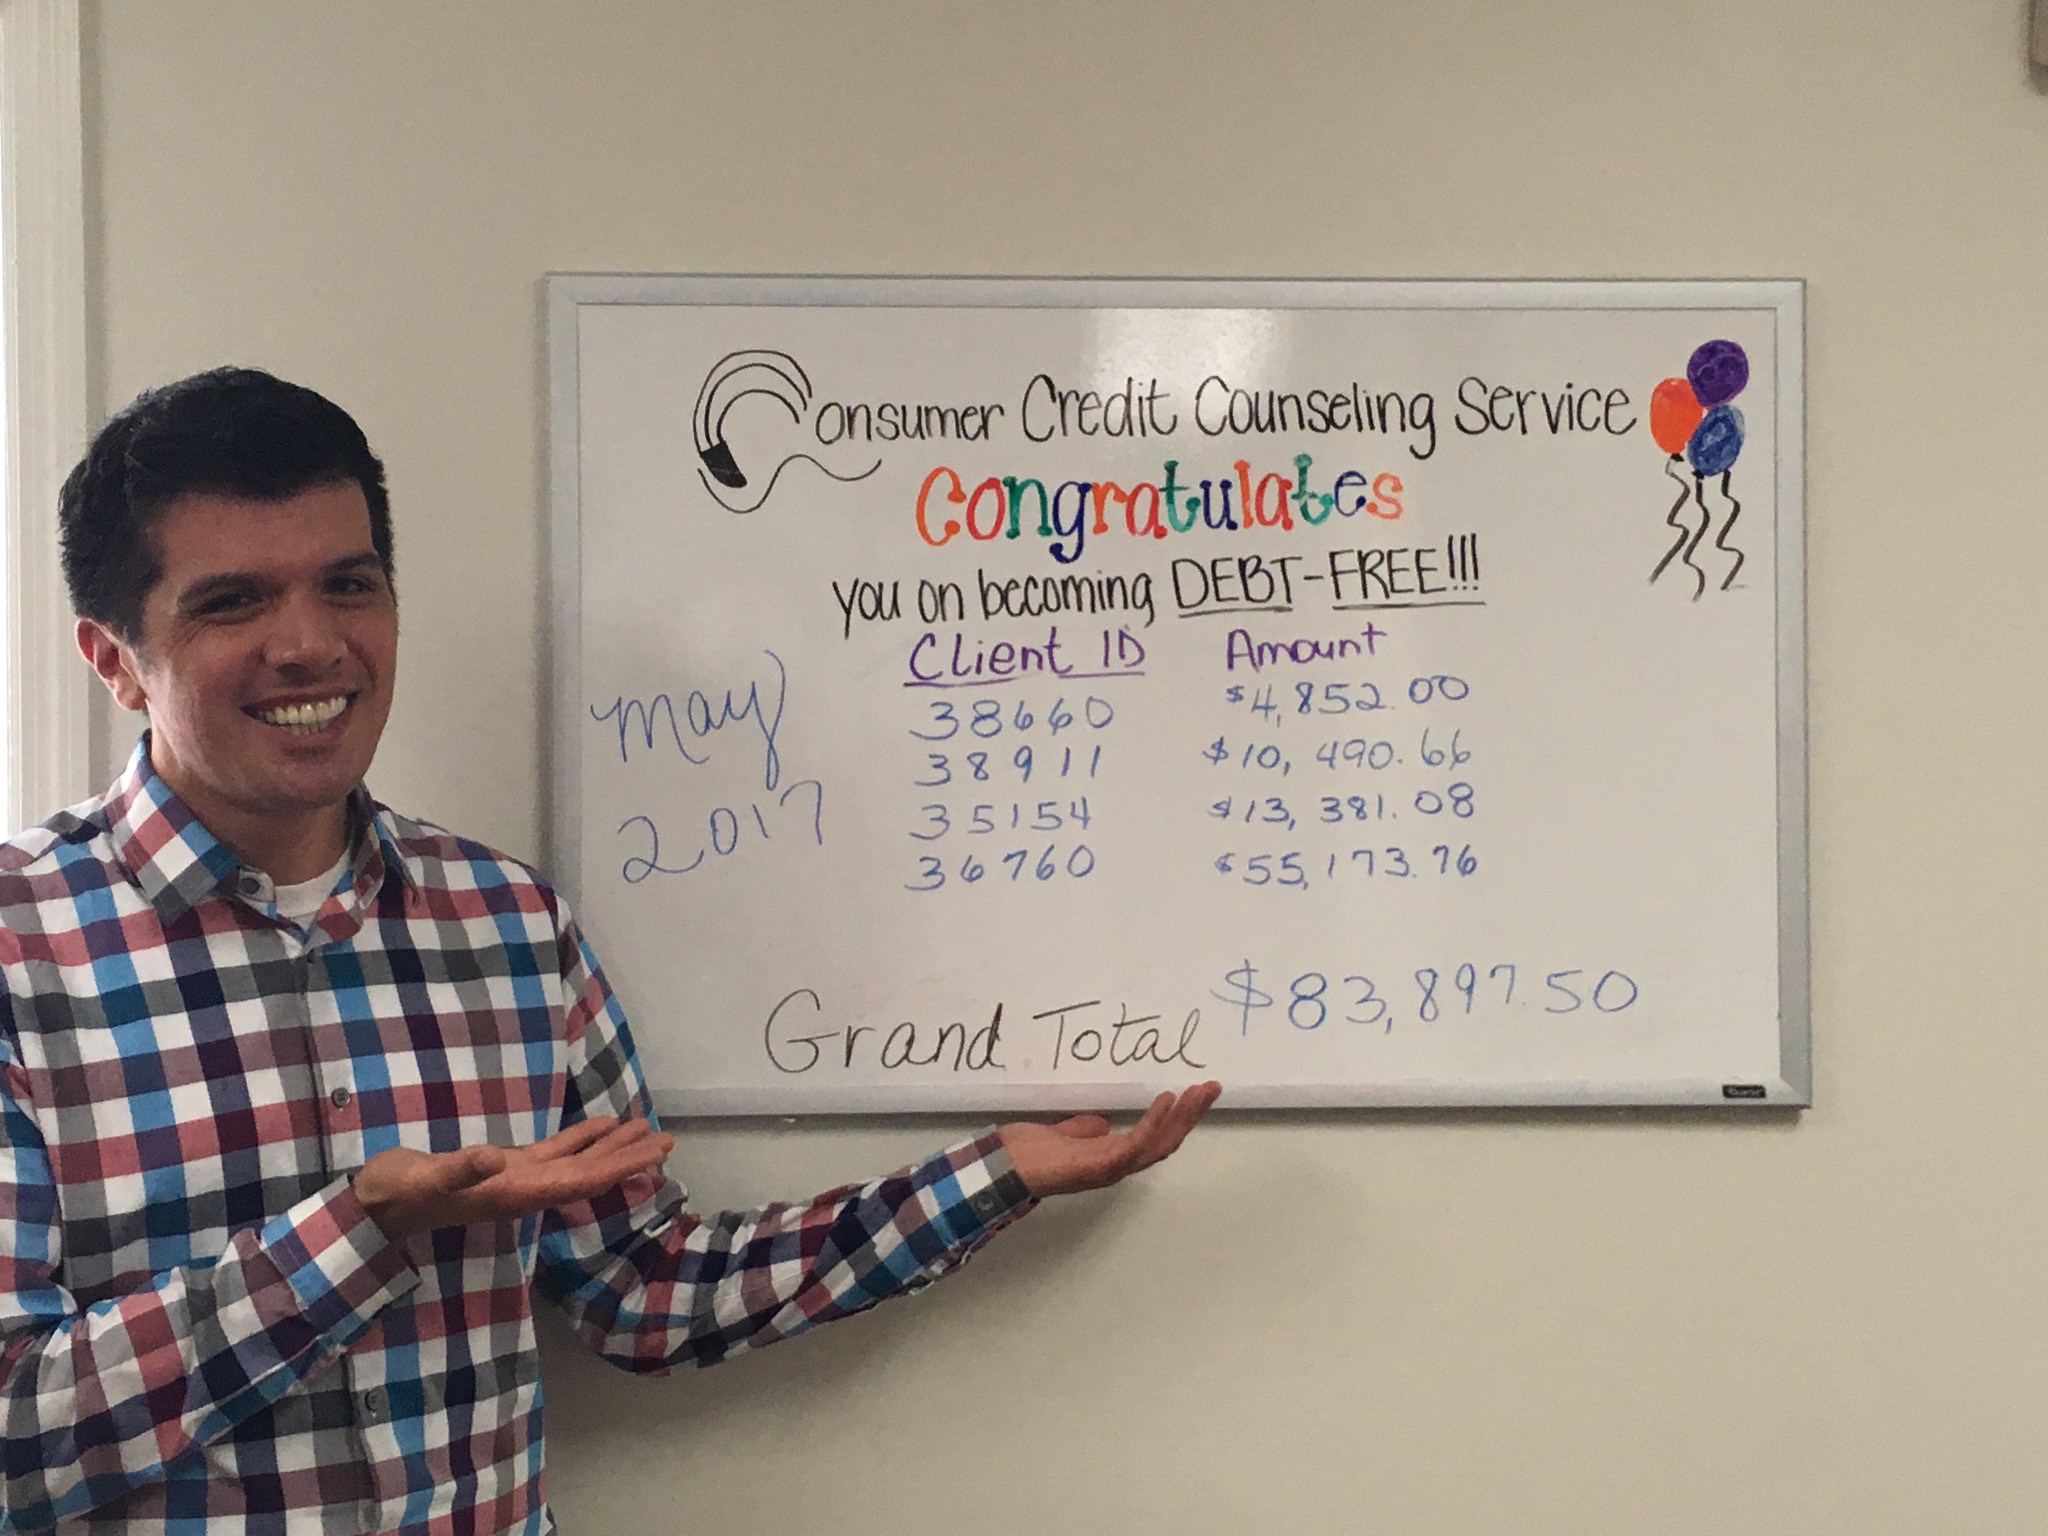 Consumer Credit Counseling Service
Congratulates
you on becoming DEBT-FREE!!!
Client ID Amount
May
2017
38660 $4,852.00
38911 $10,490.66
35154 $13,381.08
36760 $55,173.76
Grand Total $83,897.50